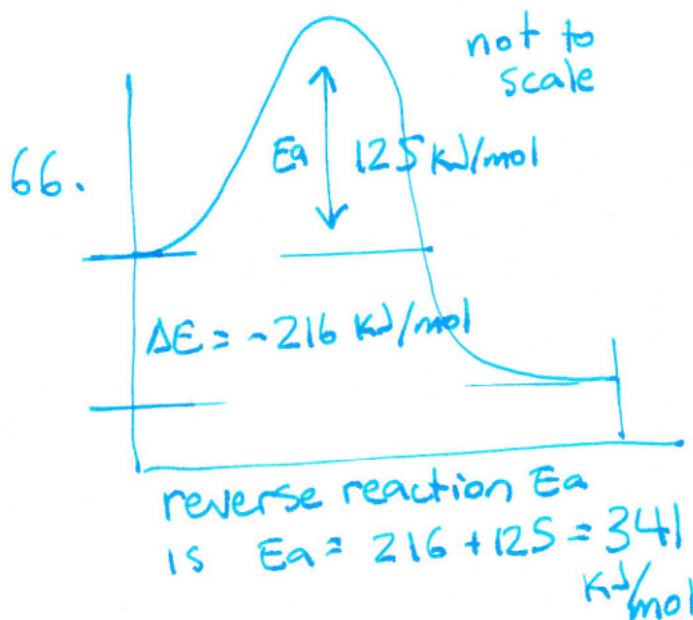 not to
scale
66.
Ea 125 kJ/mol
ΔE = -216 kJ/mol
reverse reaction Ea
is Ea = 216 + 125 = 341
kJ/mol